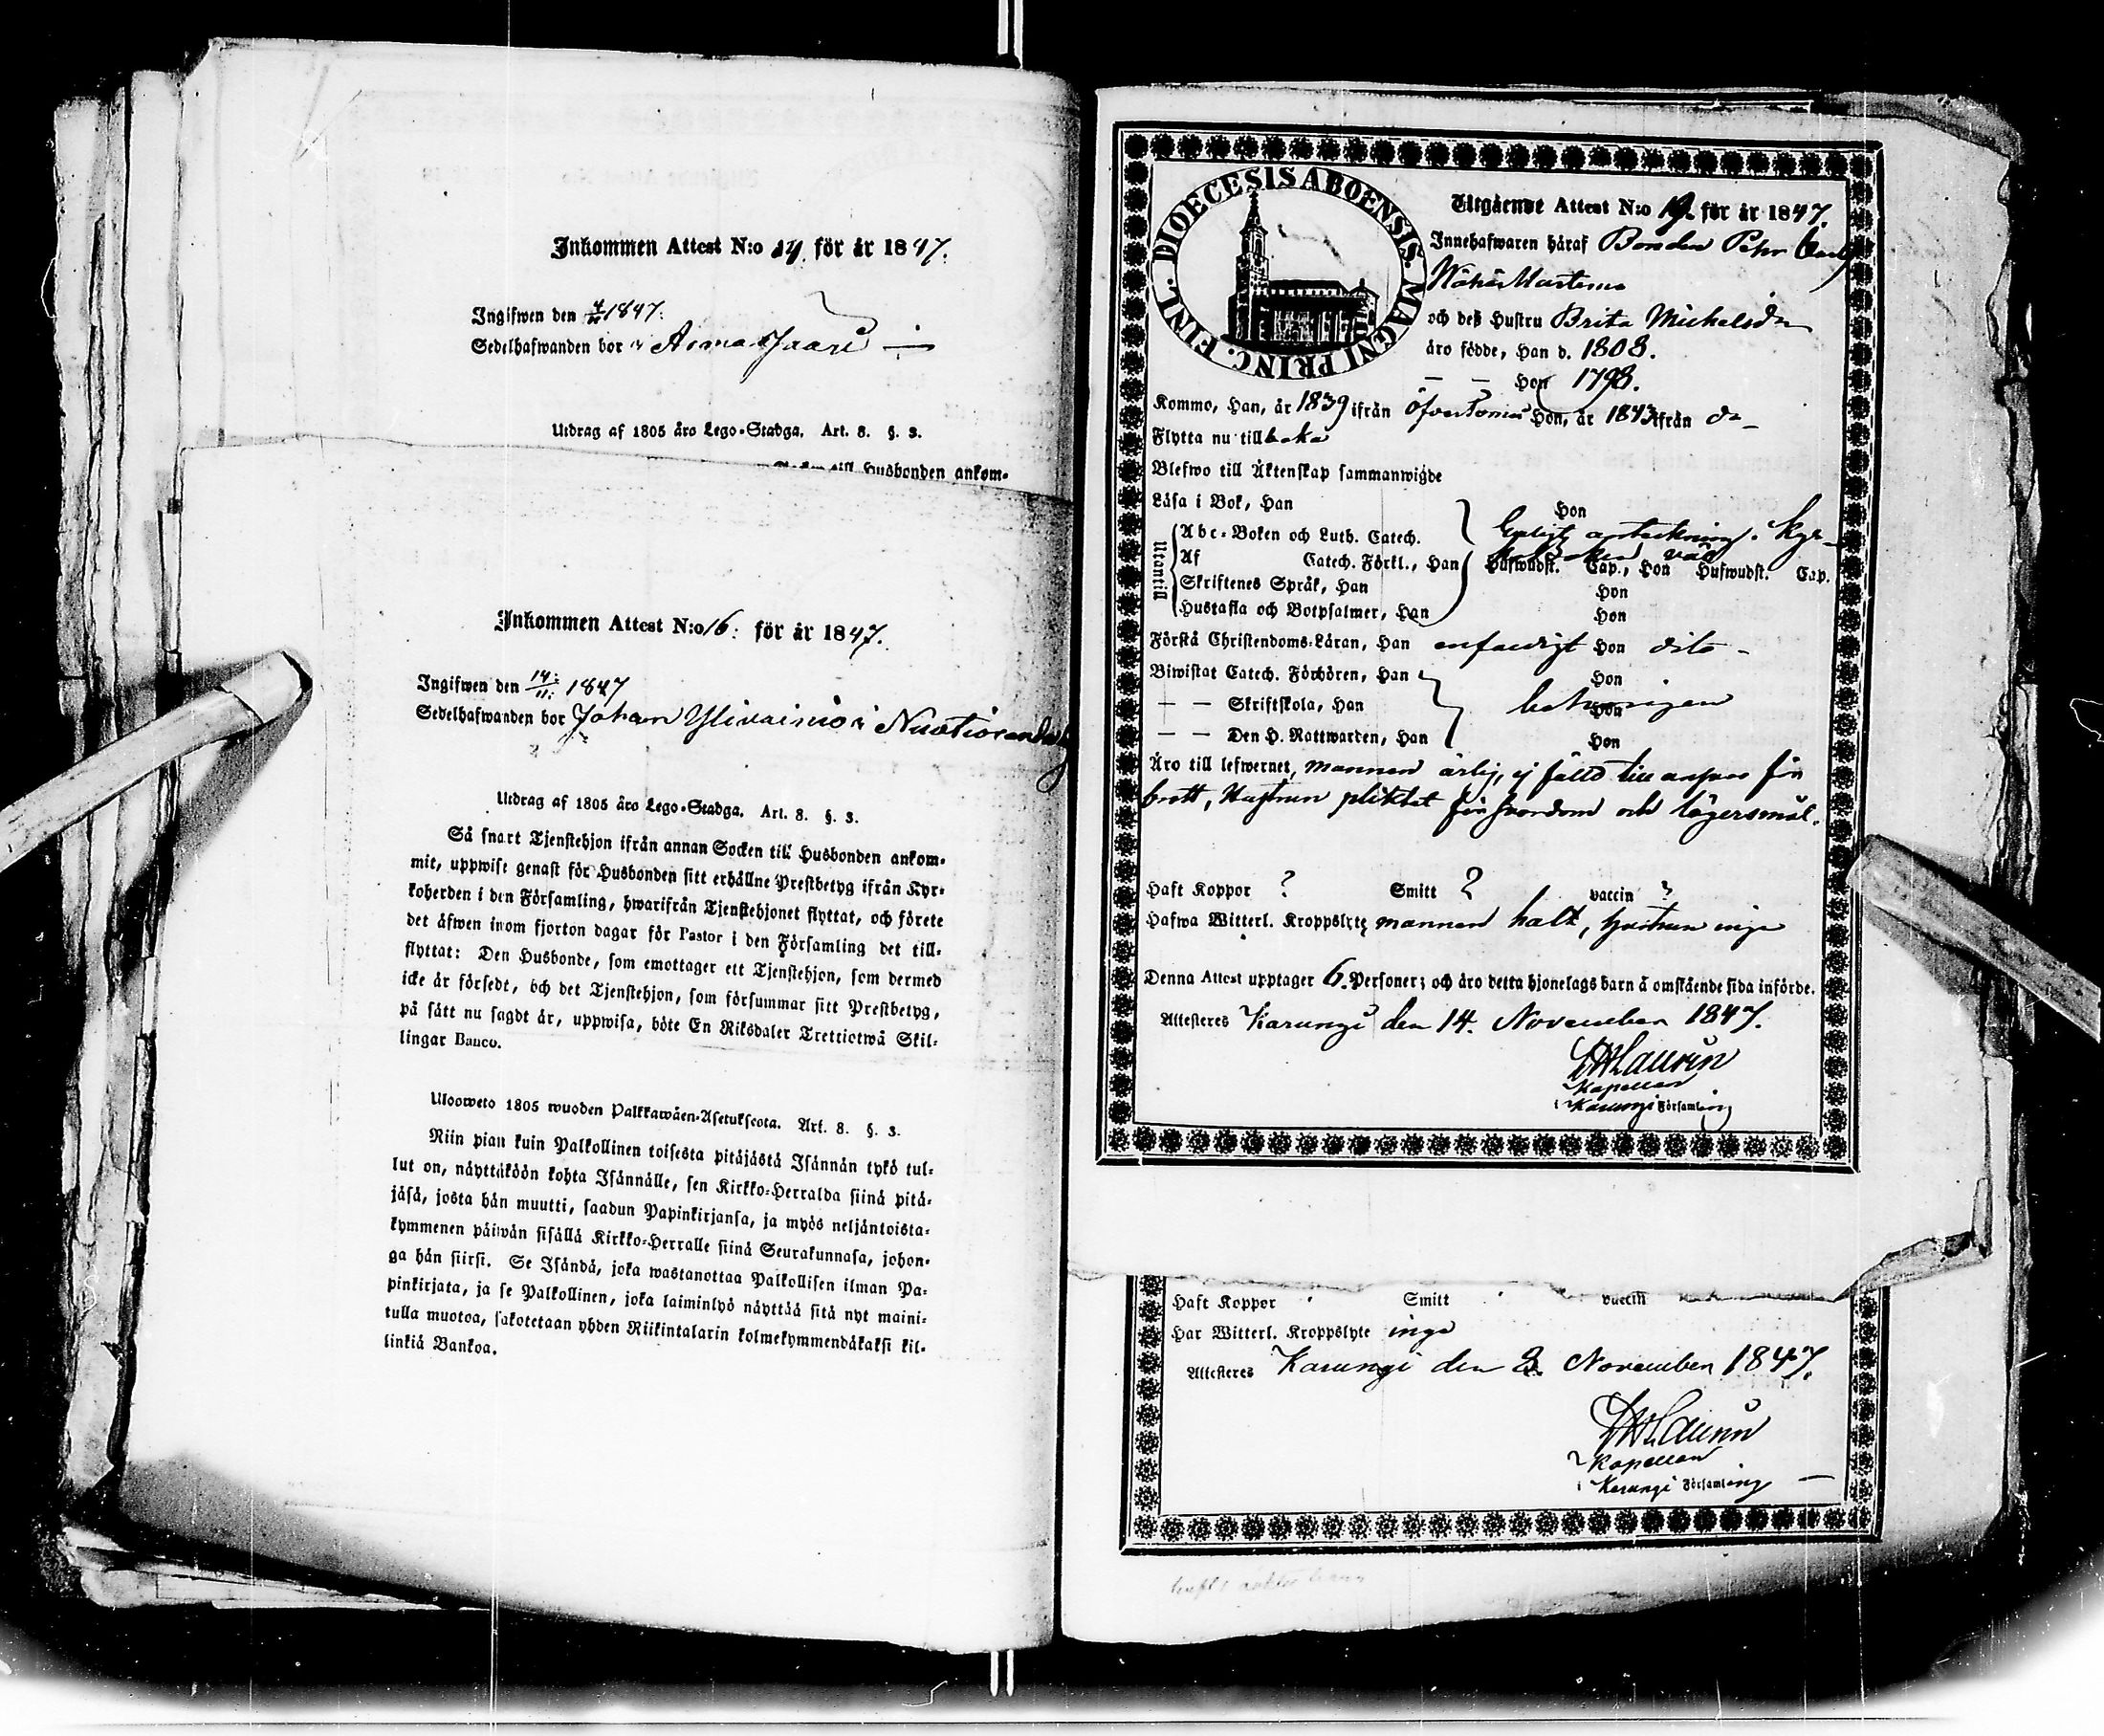 Inkommen Attest N:o 14. för år 1847.
Ingifwen den 4/11 1847.
Sedelhafwanden bor i
Utdrag af 1805 åro Lego-Stadga. Art. 8. §. 3.
till Husbonden ankom-
Inkommen Attest N:o 16: för år 1847.
Ingifwen den 14:/11: 1847
Sedelhafwanden bor Johan Ylivainio i
Utdrag af 1805 åro Lego-Stadga. Art. 8. §. 3.
Så snart Tjenstehjon ifrån annan Socken till Husbonden ankom-
mit, uppwise genast för Husbonden sitt erhållne Prestbetyg ifrån Kyr-
koherden i den Församling, hwarifrån Tjenstehjonet flyttat, och förete
det äfwen inom fjorton dagar för Pastor i den Församling det till-
flyttat: Den Husbonde, som emottager ett Tjenstehjon, som dermed
icke är försedt, och det Tjenstehjon, som försummar sitt Prestbetyg,
på sätt nu sagdt är, uppwisa, böte En Riksdaler Trettiotwå Skil-
lingar Banco.
Ulosweto 1805 wuoden Palkkawäen-Asetuksesta. Art. 8. §. 3.
Niin pian kuin Palkollinen toisesta pitäjästä Isännän tykö tul-
lut on, näyttäköön kohta Isännälle, sen Kirkko-Herralda siinä pitä-
jäsä, josta hän muutti, saadun Papinkirjansa, ja myös neljäntoista-
kymmenen päiwän sisällä Kirkko-Herralle siinä Seurakunnasa, johon-
ga hän siirsi. Se Isändä, joka wastanottaa Palkollisen ilman Pa-
pinkirjata, ja se Palkollinen, joka laiminlyö näyttää sitä nyt maini-
tulla muotoa, sakotetaan yhden Riikintalarin kolmekymmendäkaksi kil-
linkiä Bankoa.
DIOECESIS ABOENSIS. MAGNI PRINC. FINL.
Utgående Attest N:o 19. för år 1847.
Innehafwaren häraf Bonden Pehr
och deß Hustru Brita Michelsdr
äro födde, Han d. 1808.
— — Hon 1798.
Kommo, Han, år 1839 ifrån Öfvertorneå Hon, år 1843 ifrån do
Flytta nu tillbaka
Blefwo till Äktenskap sammanwigde
Läsa i Bok, Han Hon
Utantill
Abc-Boken och Luth. Catech. Enligt anteckning i Kyr-
Af Catech. Förkl., Han Hufwudst. Cap., Hon Hufwudst. Cap.
Skriftenes Språk, Han Hon
Hustafla och Botpsalmer, Han Hon
Förstå Christendoms-Läran, Han enfaldigt Hon dito
Biwistat Catech. Förhören, Han Hon
— — Skriftskola, Han behörigen Hon
— — Den H. Nattwarden, Han Hon
Äro till lefwernet, mannen ärlig, ej fälld till answar för
brott, Hustrun pliktat för hordom och lägersmål.
Haft Koppor ? Smitt ? vaccin ?
Hafwa Witterl. Kroppslyte mannen halt, hustrun inga
Denna Attest upptager 6. Personer; och äro detta hjonelags barn å omstående sida införde.
Attesteres Karungi den 14. November 1847.
Laurin
Kapellan
i Karungi Församling
Haft Koppor Smitt vaccin
Har Witterl. Kroppslyte inga
Attesteres Karungi den 3. November 1847.
Laurin
Kapellan
i Karungi Församling